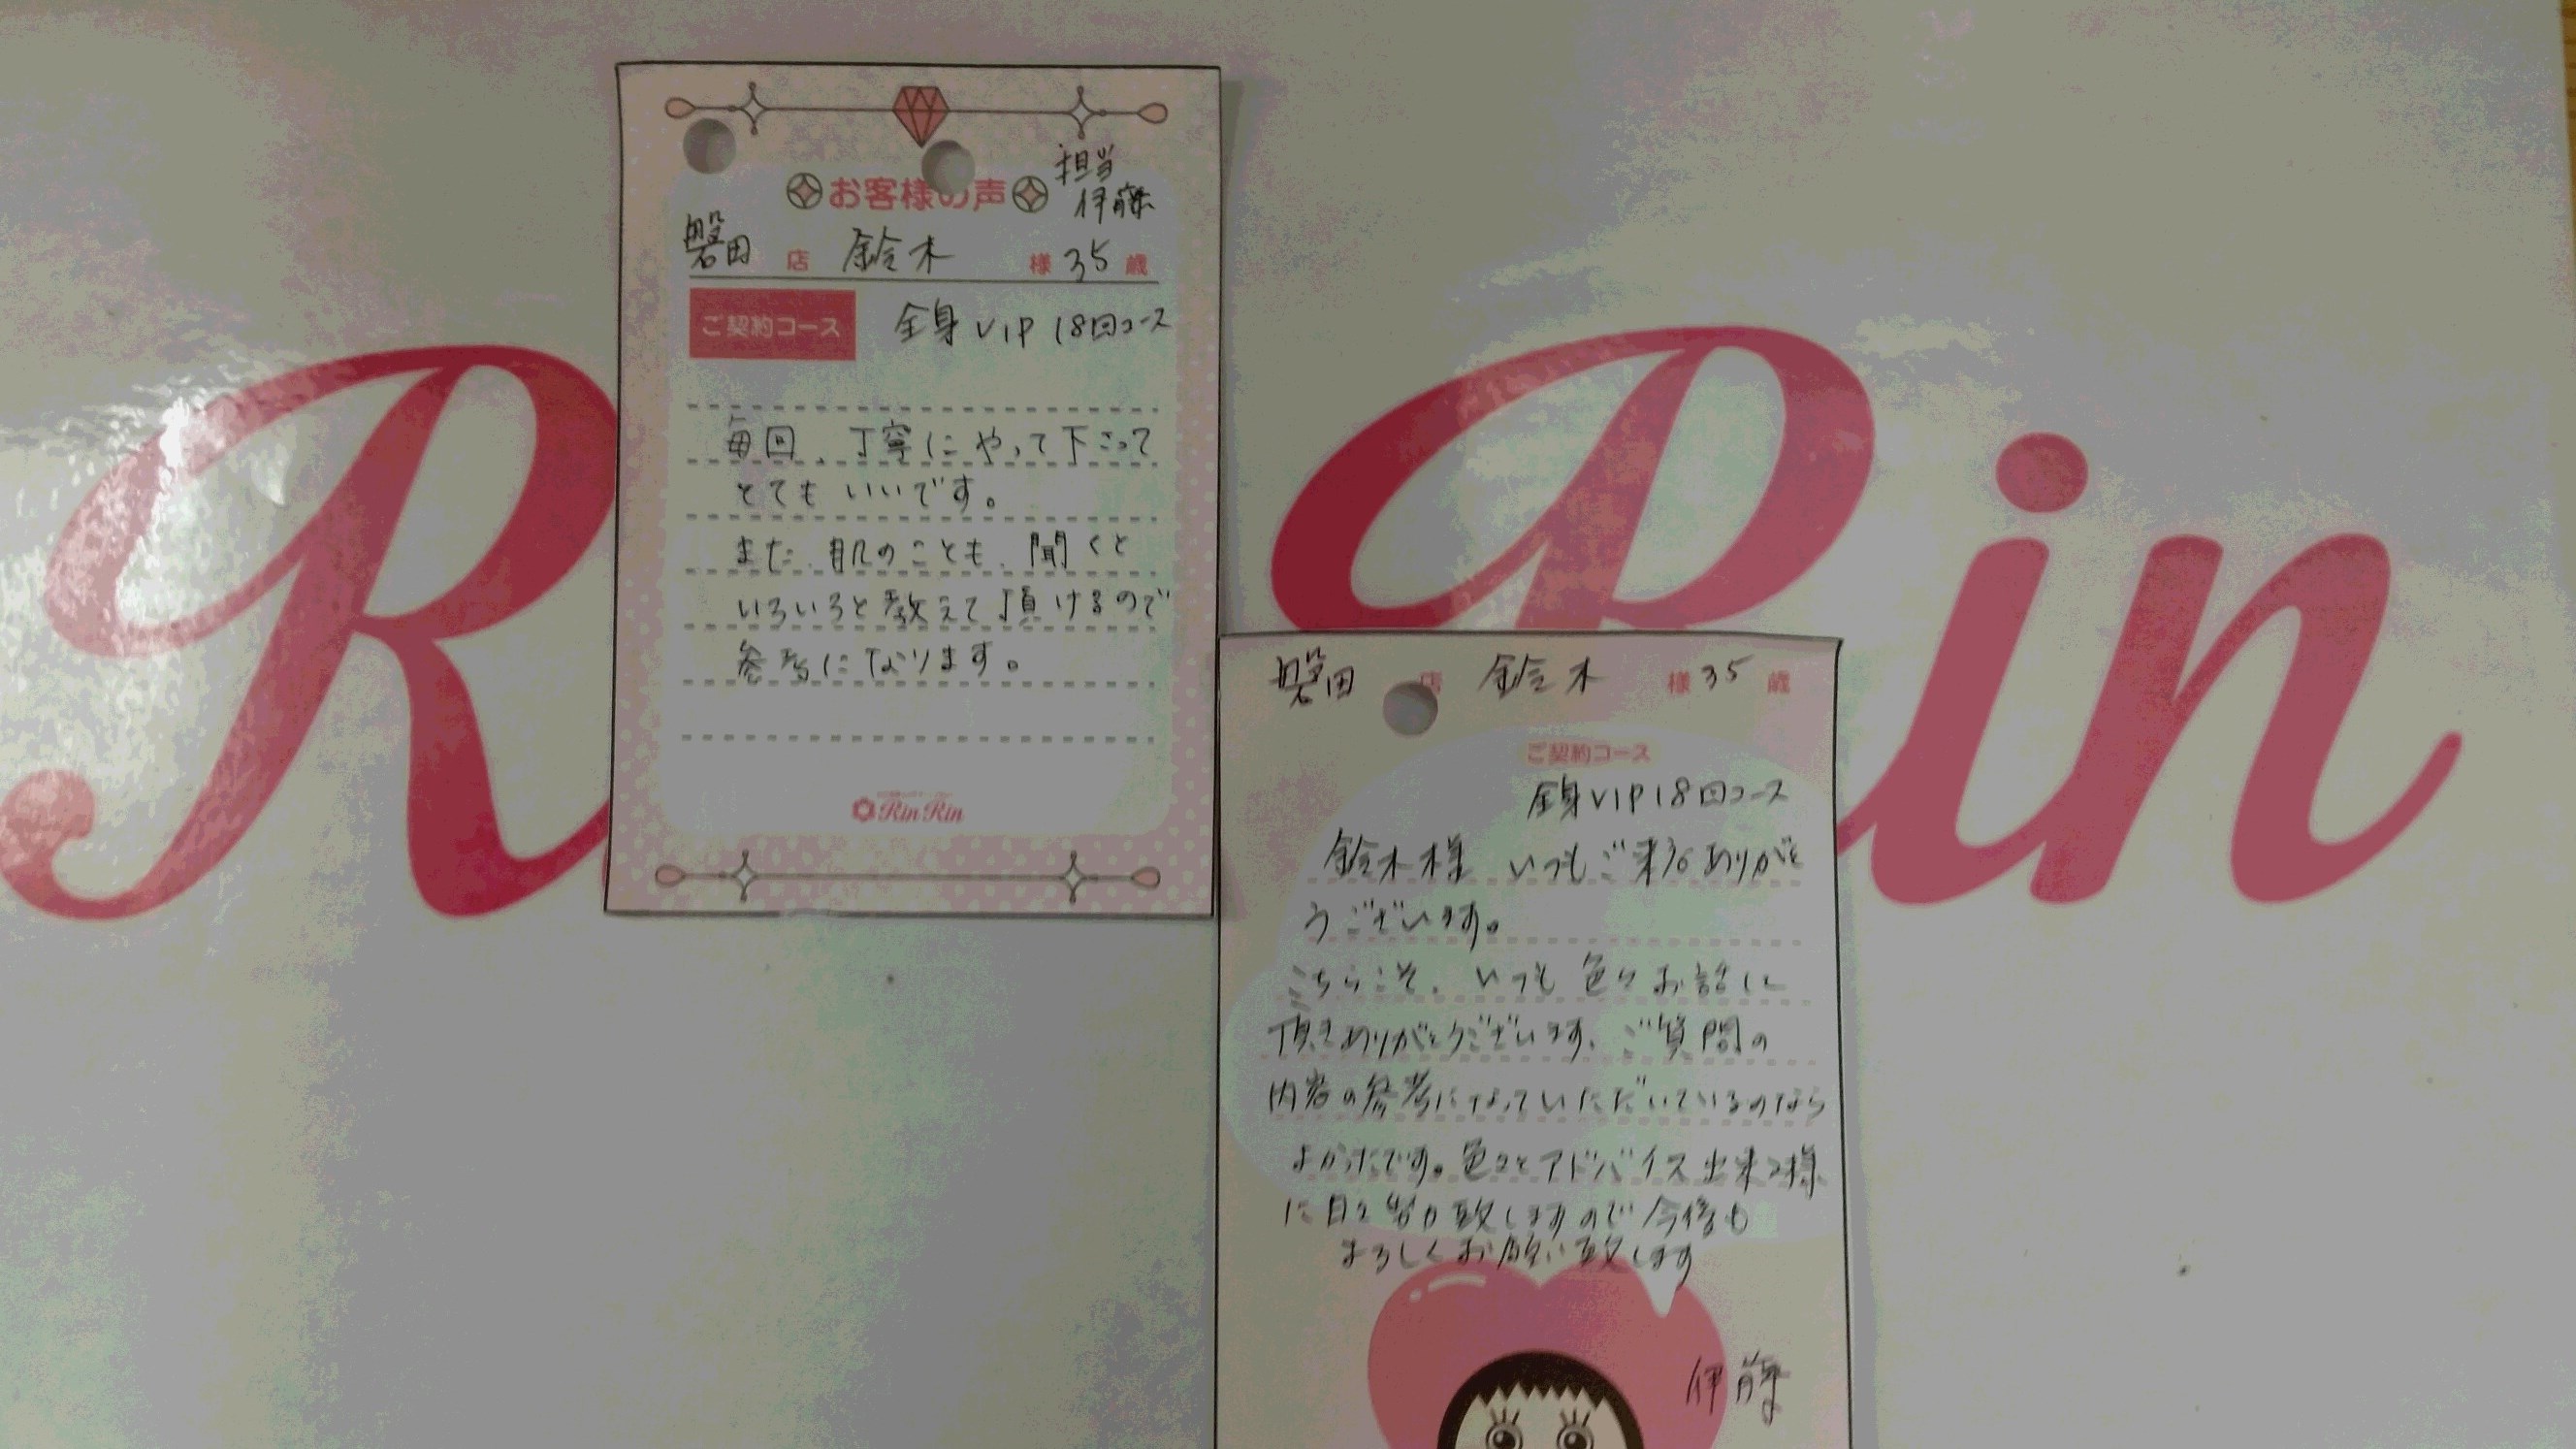 Rin
お客様の声
担当
伊藤
磐田 店 鈴木 様 35 歳
ご契約コース 全身VIP 18回コース
毎回、丁寧にやって下さって
とてもいいです。
また、肌のことも、聞くと
いろいろと教えて頂けるので
参考になります。
RinRin
磐田 店 鈴木 様 35 歳
ご契約コース
全身VIP18回コース
鈴木様 いつもご来店ありがと
うございます。
こちらこそ、いつも色々お話し
頂きありがとうございます。ご質問の
内容の参考になっていただいているのなら
よかったです。色々とアドバイス出来る様
に日々努力致しますので今後も
よろしくお願い致します
伊藤